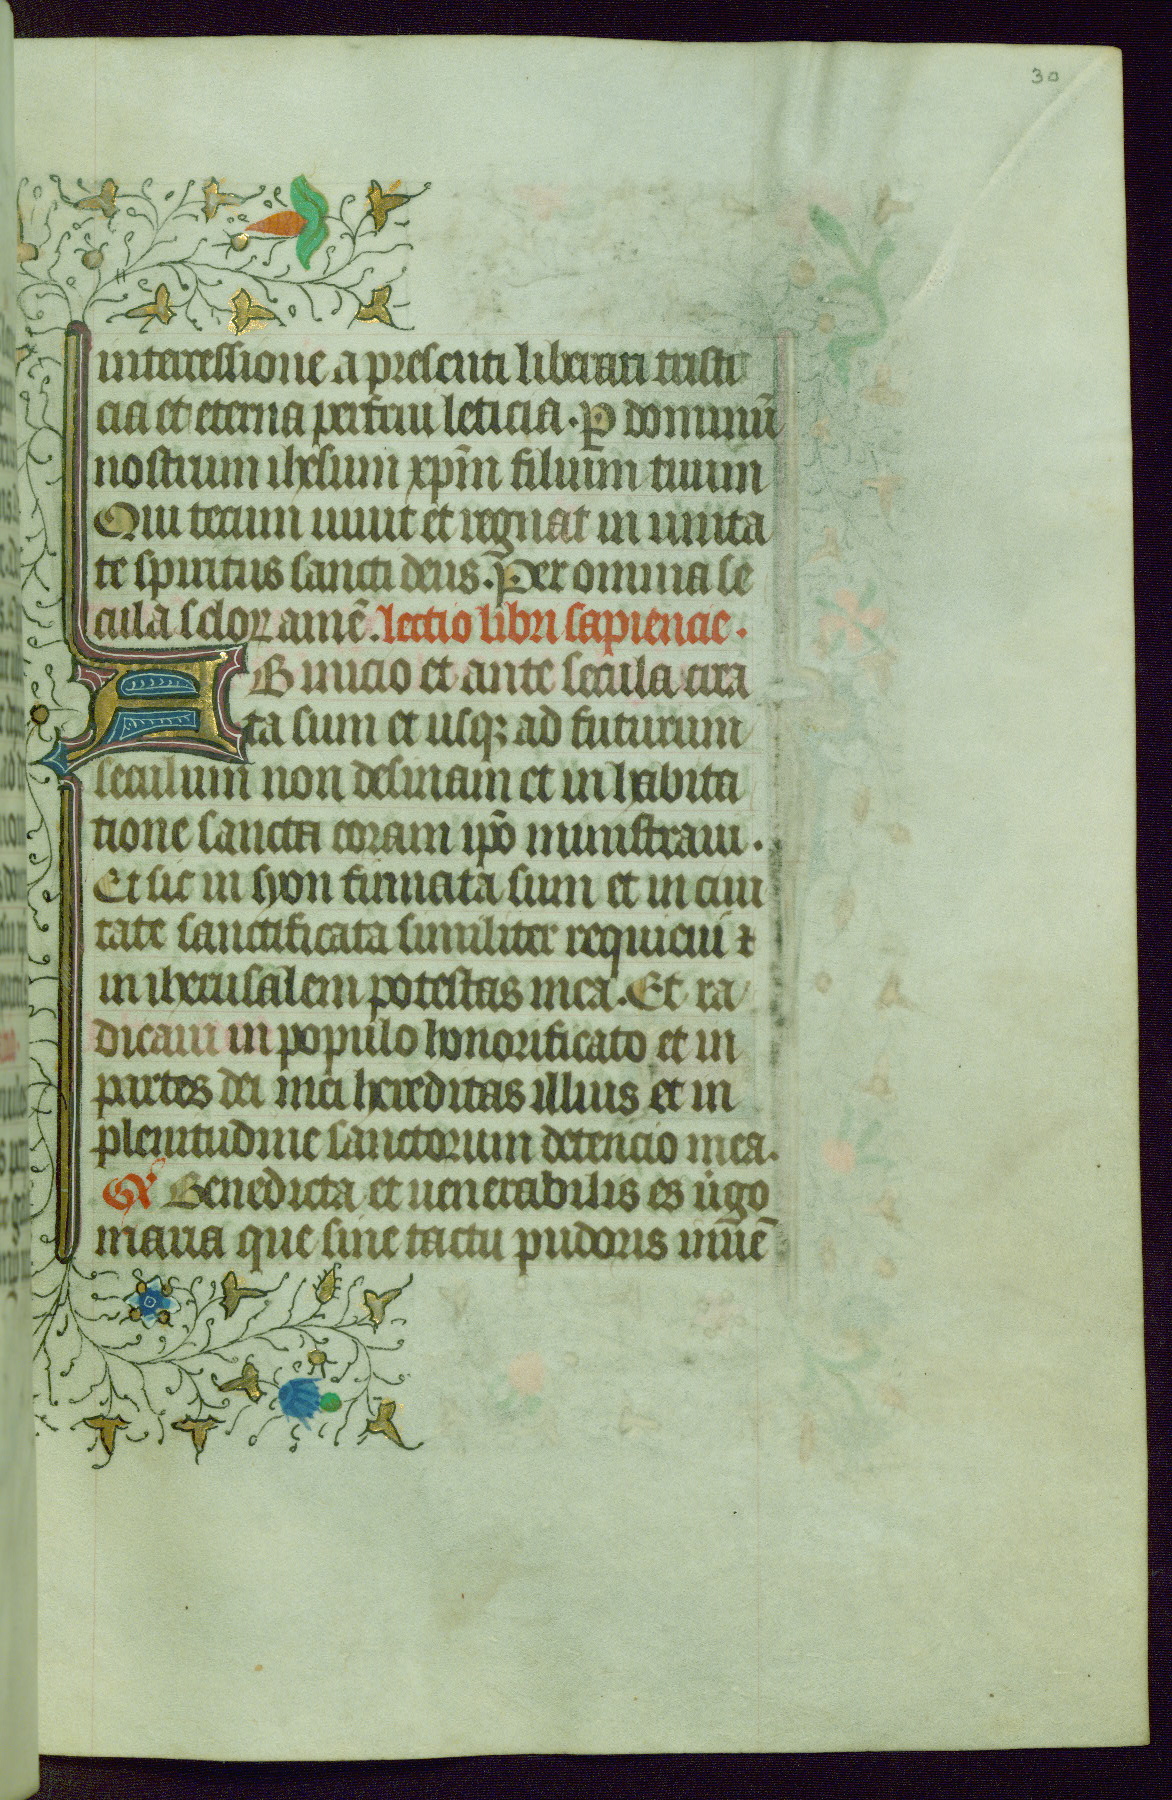 30
intercessione a presenti liberari tristi
cia et eterna perfrui leticia. P̲ dominū
nostrum ihesum xp̄m filium tuum
Qui tecum uiuit et regnat in unita
te spiritus sancti deus. Per omnia se
cula sclorꝝ amē. lectio libri sapiencie.
AB inicio et ante secula crea
ta sum et usqꝫ ad futurum
seculum non desinam et in habita
tione sancta coram ipō ministraui.
Et sic in syon firmata sum et in ciui
tate sanctificata similiter requieui ⁊
in iherusalem potestas mea. Et ra
dicaui in populo honorificato et in
partes dei mei hereditas illius et in
plenitudine sanctorum detencio mea.
Gͬ Benedicta et uenerabilis es uirgo
maria que sine tactu pudoris inuē